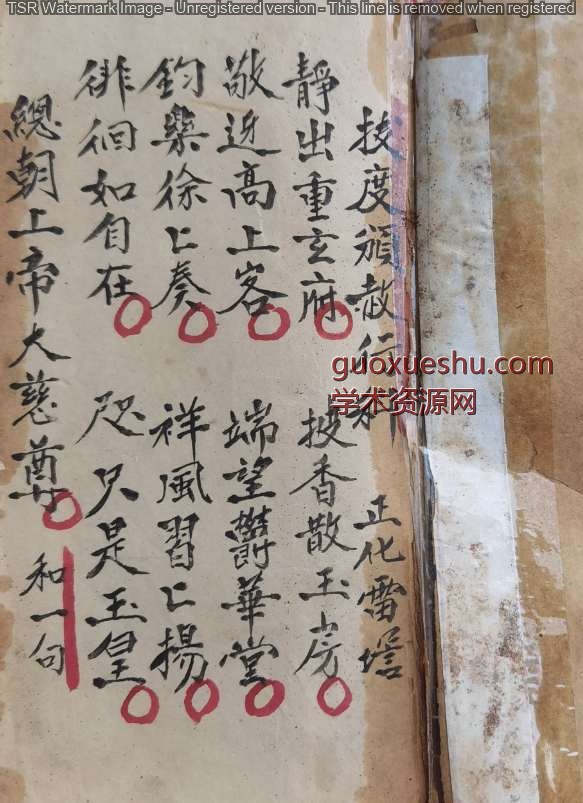 TSR Watermark Image - Unregistered version - This line is removed when registered
拔度頒赦行科 正化雷壇
靜出重玄府 披香散玉房
敬迎高上客 端望鬱華堂
鈞樂徐〻奏 祥風習〻揚
徘徊如自在 咫只是玉皇
總朝上帝大慈尊 和一句
guoxueshu.com
学术资源网